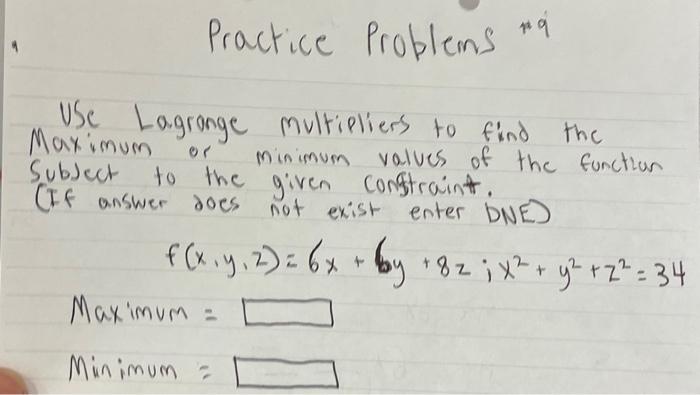 Practice Problems #9
Use Lagrange multipliers to find the
Maximum or minimum values of the function
Subject to the given constraint.
(If answer does not exist enter DNE)
f(x,y,z)= 6x + 6y +8z ; x² + y² + z² = 34
Maximum =
Minimum =